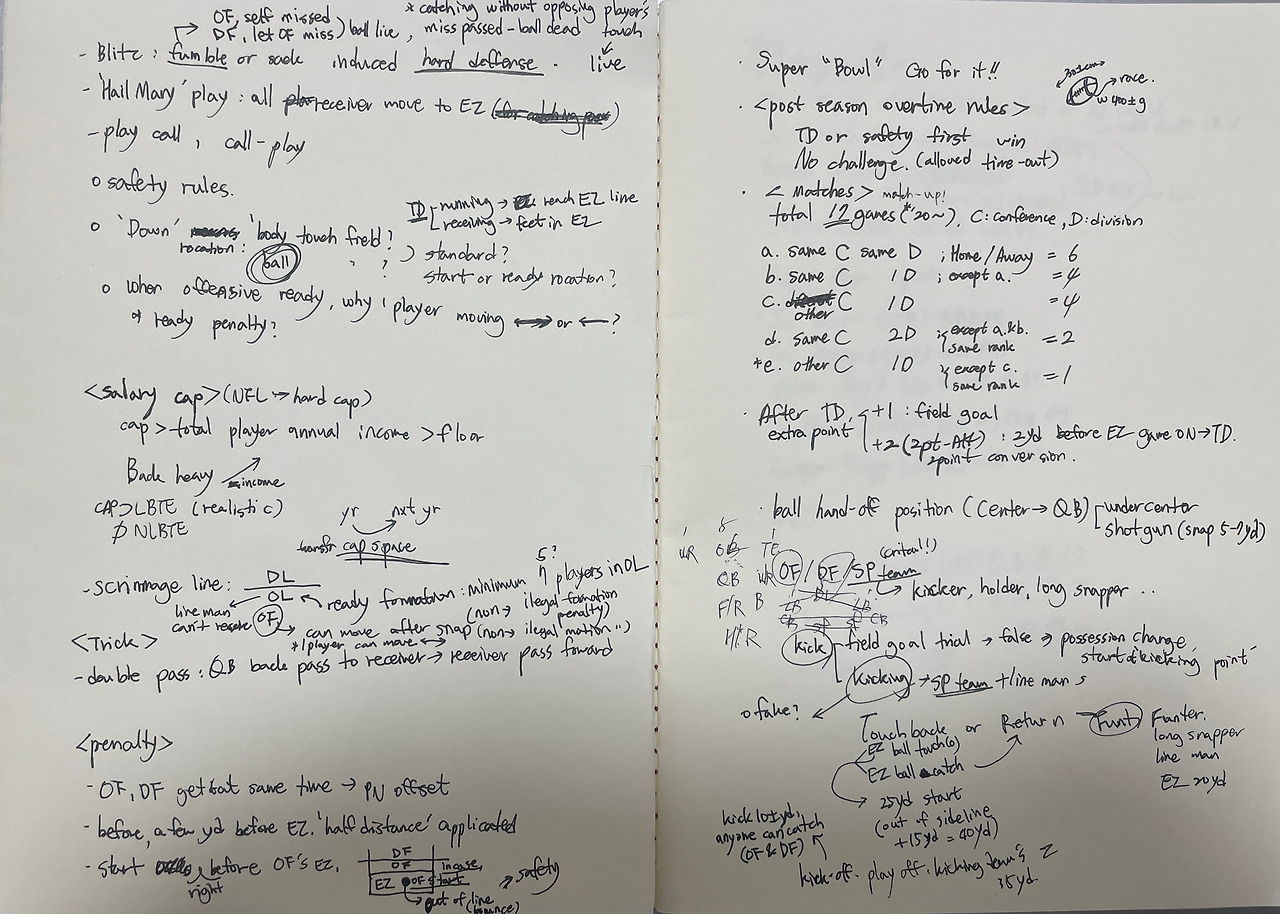 OF, self missed
DF, let OF miss) ball live, miss passed-ball dead
* catching without opposing player's touch
live
- Blitz : fumble or sack induced hard deffense.
- 'Hail Mary' play : all receiver move to EZ
- play call, call-play
o safety rules.
TD running → reach EZ line
receiving → feet in EZ
o 'Down' 'body touch field?
rocation : ball " ?
) standard?
start or ready rocation?
o when offensive ready, why 1 player moving ⟷ or ← ?
* ready penalty?
<salary cap> (NFL → hard cap)
cap > total player annual income > floor
Back heavy income
CAP⊃LBTE (realistic)
∅ NLBTE
yr nxt yr
transfr cap space
- scrimmage line : DL
OL
line man can't
OF
ready formation : minimum 7 players in OL
5?
(non → ilegal formation penalty)
can move after snap (non → ilegal motion ")
* 1 player can move ⟷
<Trick>
- double pass : QB back pass to receiver → receiver pass foward
<penalty>
- OF, DF get at same time → PN offset
- before, a few yd before EZ. 'half distance' applicated
- start right before OF's EZ.
DF
OF
EZ OF start
incase,
→ safety
→ out of line
· Super "Bowl" Go for it!!
race.
w 400±g
· <post season overtime rules>
TD or safety first win
No challenge. (allowed time-out)
· <Matches> match-up!
total 17 games ('20~). C: conference, D: division
a. same C same D ; Home/Away = 6
b. same C 1D ; except a. = 4
c. other C 1D = 4
d. same C 2D ; except a.&b. same rank = 2
*e. other C 1D ; except c. same rank = 1
· After TD, extra point
+1 : field goal
+2 (2pt-Att) : 2yd before EZ game ON → TD.
2point conversion.
· ball hand-off position (Center → QB)
under center
shotgun (snap 5-7yd)
WR TE
QB
F/R B
H/R
OF / DF / SP team (critcal!)
→ kicker, holder, long snapper ..
kick
field goal trial → false → possession change, start at kicking point
kicking → SP team + line man s
o fake?
Touchback or Return
EZ ball touch(o)
EZ ball catch
→ 25yd start
(out of sideline
+15yd = 40yd)
Funt
Funter.
long snapper
line man
EZ 20yd
kick 10±yd,
anyone can catch
(OF & DF)
kick-off. play off. kicking team's
35yd